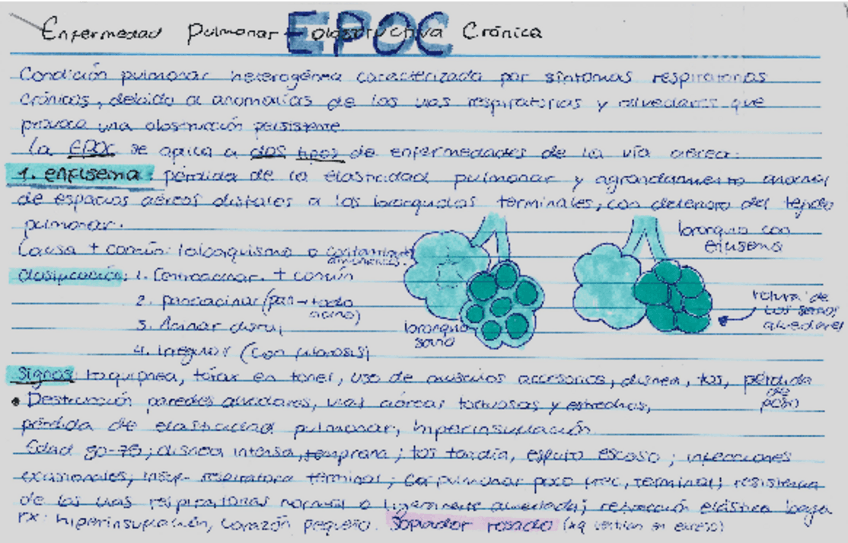 EPOC
Enfermedad Pulmonar obstructiva Crónica
Condición pulmonar heterogénea caracterizada por síntomas respiratorios
crónicos, debido a anomalías de las vías respiratorias y alveolares que
provoca una obstrucción persistente.
La EPOC se aplica a dos tipos de enfermedades de la vía aérea:
1. enfisema: pérdida de la elasticidad pulmonar y agrandamiento anormal
de espacios aéreos distales a los bronquiolos terminales, con deterioro del tejido
pulmonar.
Causa + común: tabaquismo o
bronquio con
enfisema
Clasificación: 1. Centroacinar. + común
2. panacinar (pan → todo
acino)
3. Acinar distal
4. Irregular (con fibrosis)
bronquio
sano
rotura de
las
alveolares
Signos: taquipnea, tórax en tonel, uso de músculos accesorios, disnea, tos, pérdida
de
peso
• Destrucción paredes alveolares, vías aéreas tortuosas y estrechas,
pérdida de elasticidad pulmonar, hiperinsuflación
Edad 50-75; disnea intensa, temprana; tos tardía, esputo escaso; infecciones
ocasionales; insuf. respiratoria terminal; cor pulmonar poco frec, terminal; resistencia
de las vías respiratorias normal o ligeramente elevada; retracción elástica baja
rx: hiperinsuflación, corazón pequeño. Soplador rosado (xq ventilan en exceso)